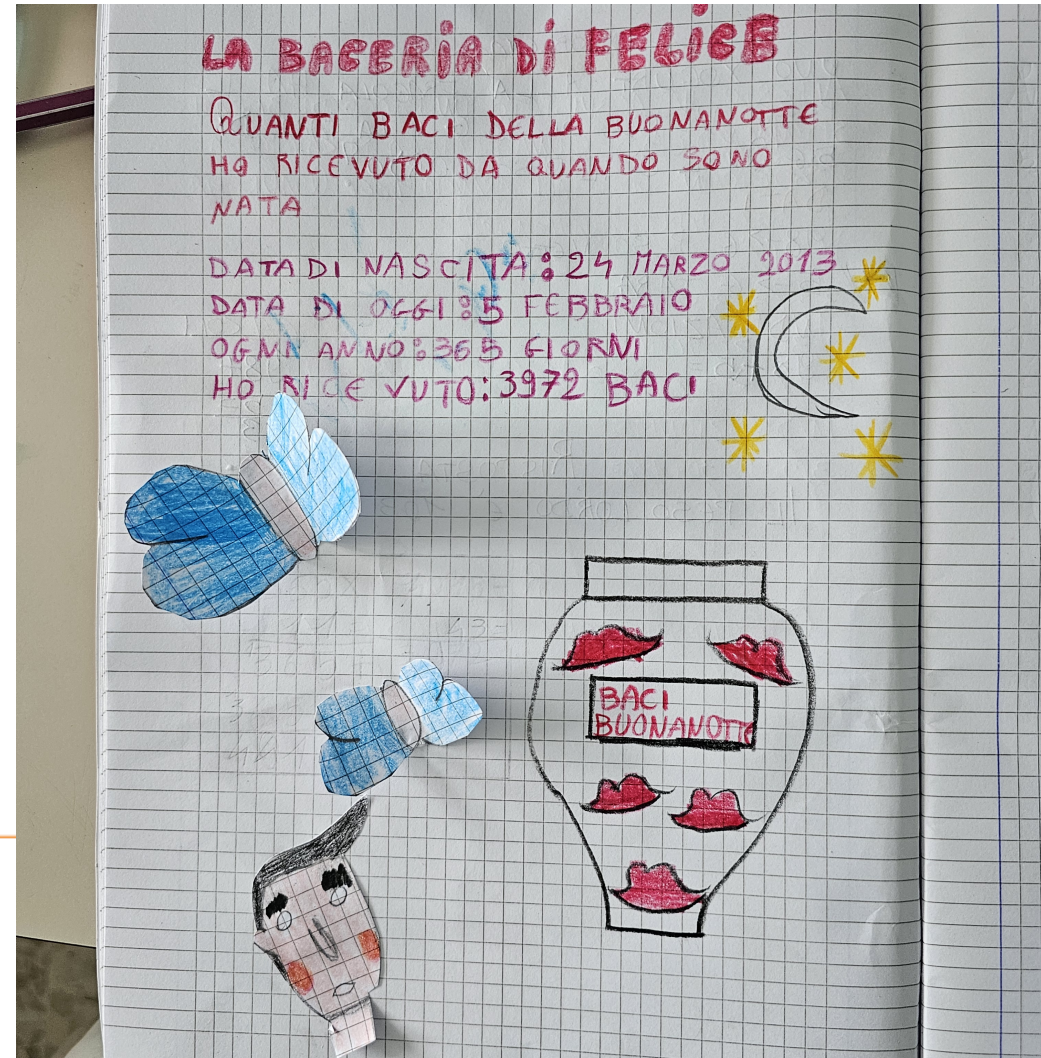 LA BACERIA DI FELICE
QUANTI BACI DELLA BUONANOTTE
HO RICEVUTO DA QUANDO SONO
NATA
DATA DI NASCITA: 24 MARZO 2013
DATA DI OGGI: 5 FEBBRAIO
OGNI ANNO: 365 GIORNI
HO RICEVUTO: 3972 BACI
BACI
BUONANOTTE